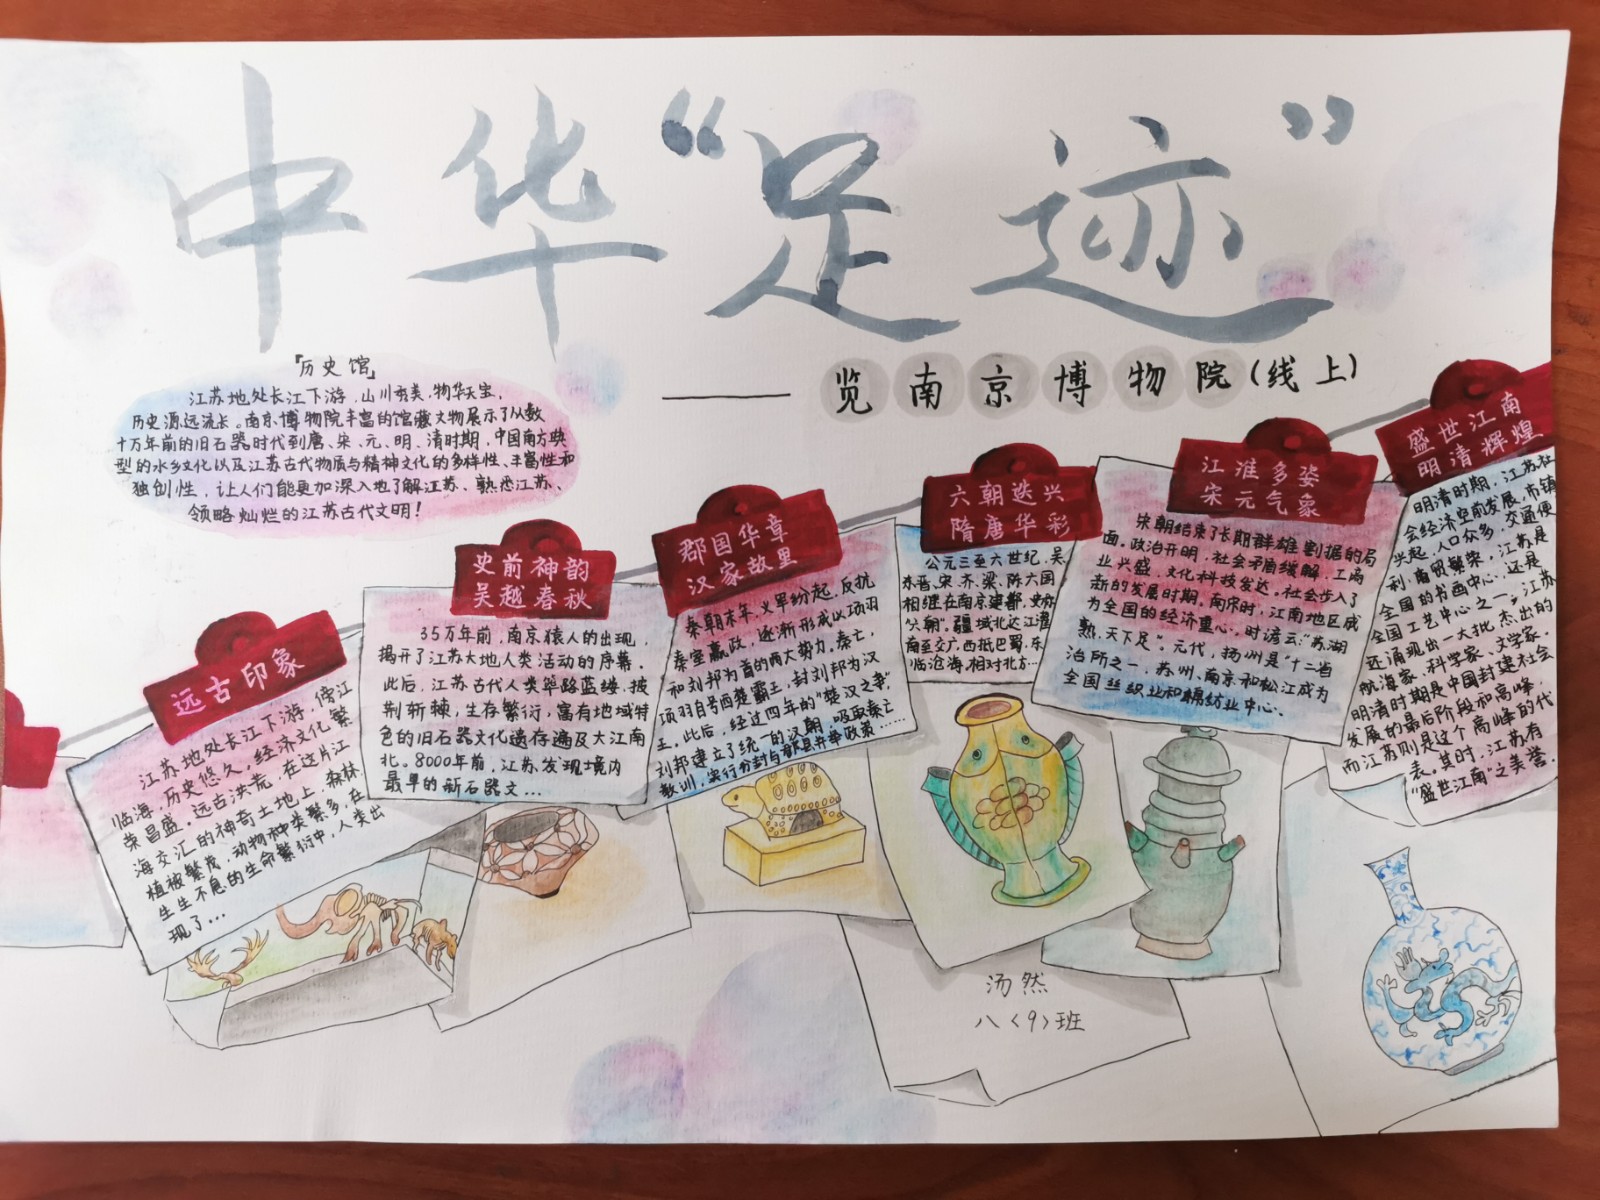 中华“足迹”
——览南京博物院(线上)
「历史馆」
江苏地处长江下游,山川秀美,物华天宝,
历史源远流长。南京博物院丰富的馆藏文物展示了从数
十万年前的旧石器时代到唐、宋、元、明、清时期,中国南方典
型的水乡文化以及江苏古代物质与精神文化的多样性、丰富性和
独创性,让人们能更加深入地了解江苏、熟悉江苏、
领略灿烂的江苏古代文明!
远古印象
江苏地处长江下游,傍江
临海,历史悠久,经济文化繁
荣昌盛。远古洪荒,在这片江
海交汇的神奇土地上,森林
植被繁茂,动物种类繁多,在
生生不息的生命繁衍中,人类出
现了...
史前神韵
吴越春秋
35万年前,南京猿人的出现,
揭开了江苏大地人类活动的序幕。
此后,江苏古代人类筚路蓝缕,披
荆斩棘,生存繁衍,富有地域特
色的旧石器文化遗存遍及大江南
北。8000年前,江苏发现境内
最早的新石器文...
郡国华章
汉家故里
秦朝末年,义军纷起,反抗
秦室嬴政,逐渐形成以项羽
和刘邦为首的两大势力。秦亡,
项羽自号西楚霸王,封刘邦为汉
王。此后,经过四年的“楚汉之争”,
刘邦建立了统一的汉朝,吸取秦亡
教训,实行分封与郡县并举政策......
六朝迭兴
隋唐华彩
公元三至六世纪,吴、
东晋、宋、齐、梁、陈六国
相继在南京建都,史称
“六朝”。疆域北达江淮,
南至交广,西抵巴蜀,东
临沧海,相对北方...
江淮多姿
宋元气象
宋朝结束了长期群雄割据的局
面。政治开明,社会矛盾缓解,工商
业兴盛,文化科技发达。社会步入了
新的发展时期。南宋时,江南地区成
为全国的经济重心。时谚云:“苏湖
熟,天下足”。元代,扬州是“十二省
治所之一,苏州、南京和松江成为
全国丝织业和棉纺业中心。
盛世江南
明清辉煌
明清时期,江苏社
会经济空前发展,市镇
兴起,人口众多,交通便
利,商贸繁荣,江苏是
全国的书画中心,还是
全国工艺中心之一,江苏
还涌现出一大批杰出的
航海家、科学家、文学家。
明清时期是中国封建社会
发展的最后阶段和高峰,
而江苏则是这个高峰的代
表。其时,江苏有
“盛世江南”之美誉。
汤然
八〈9〉班